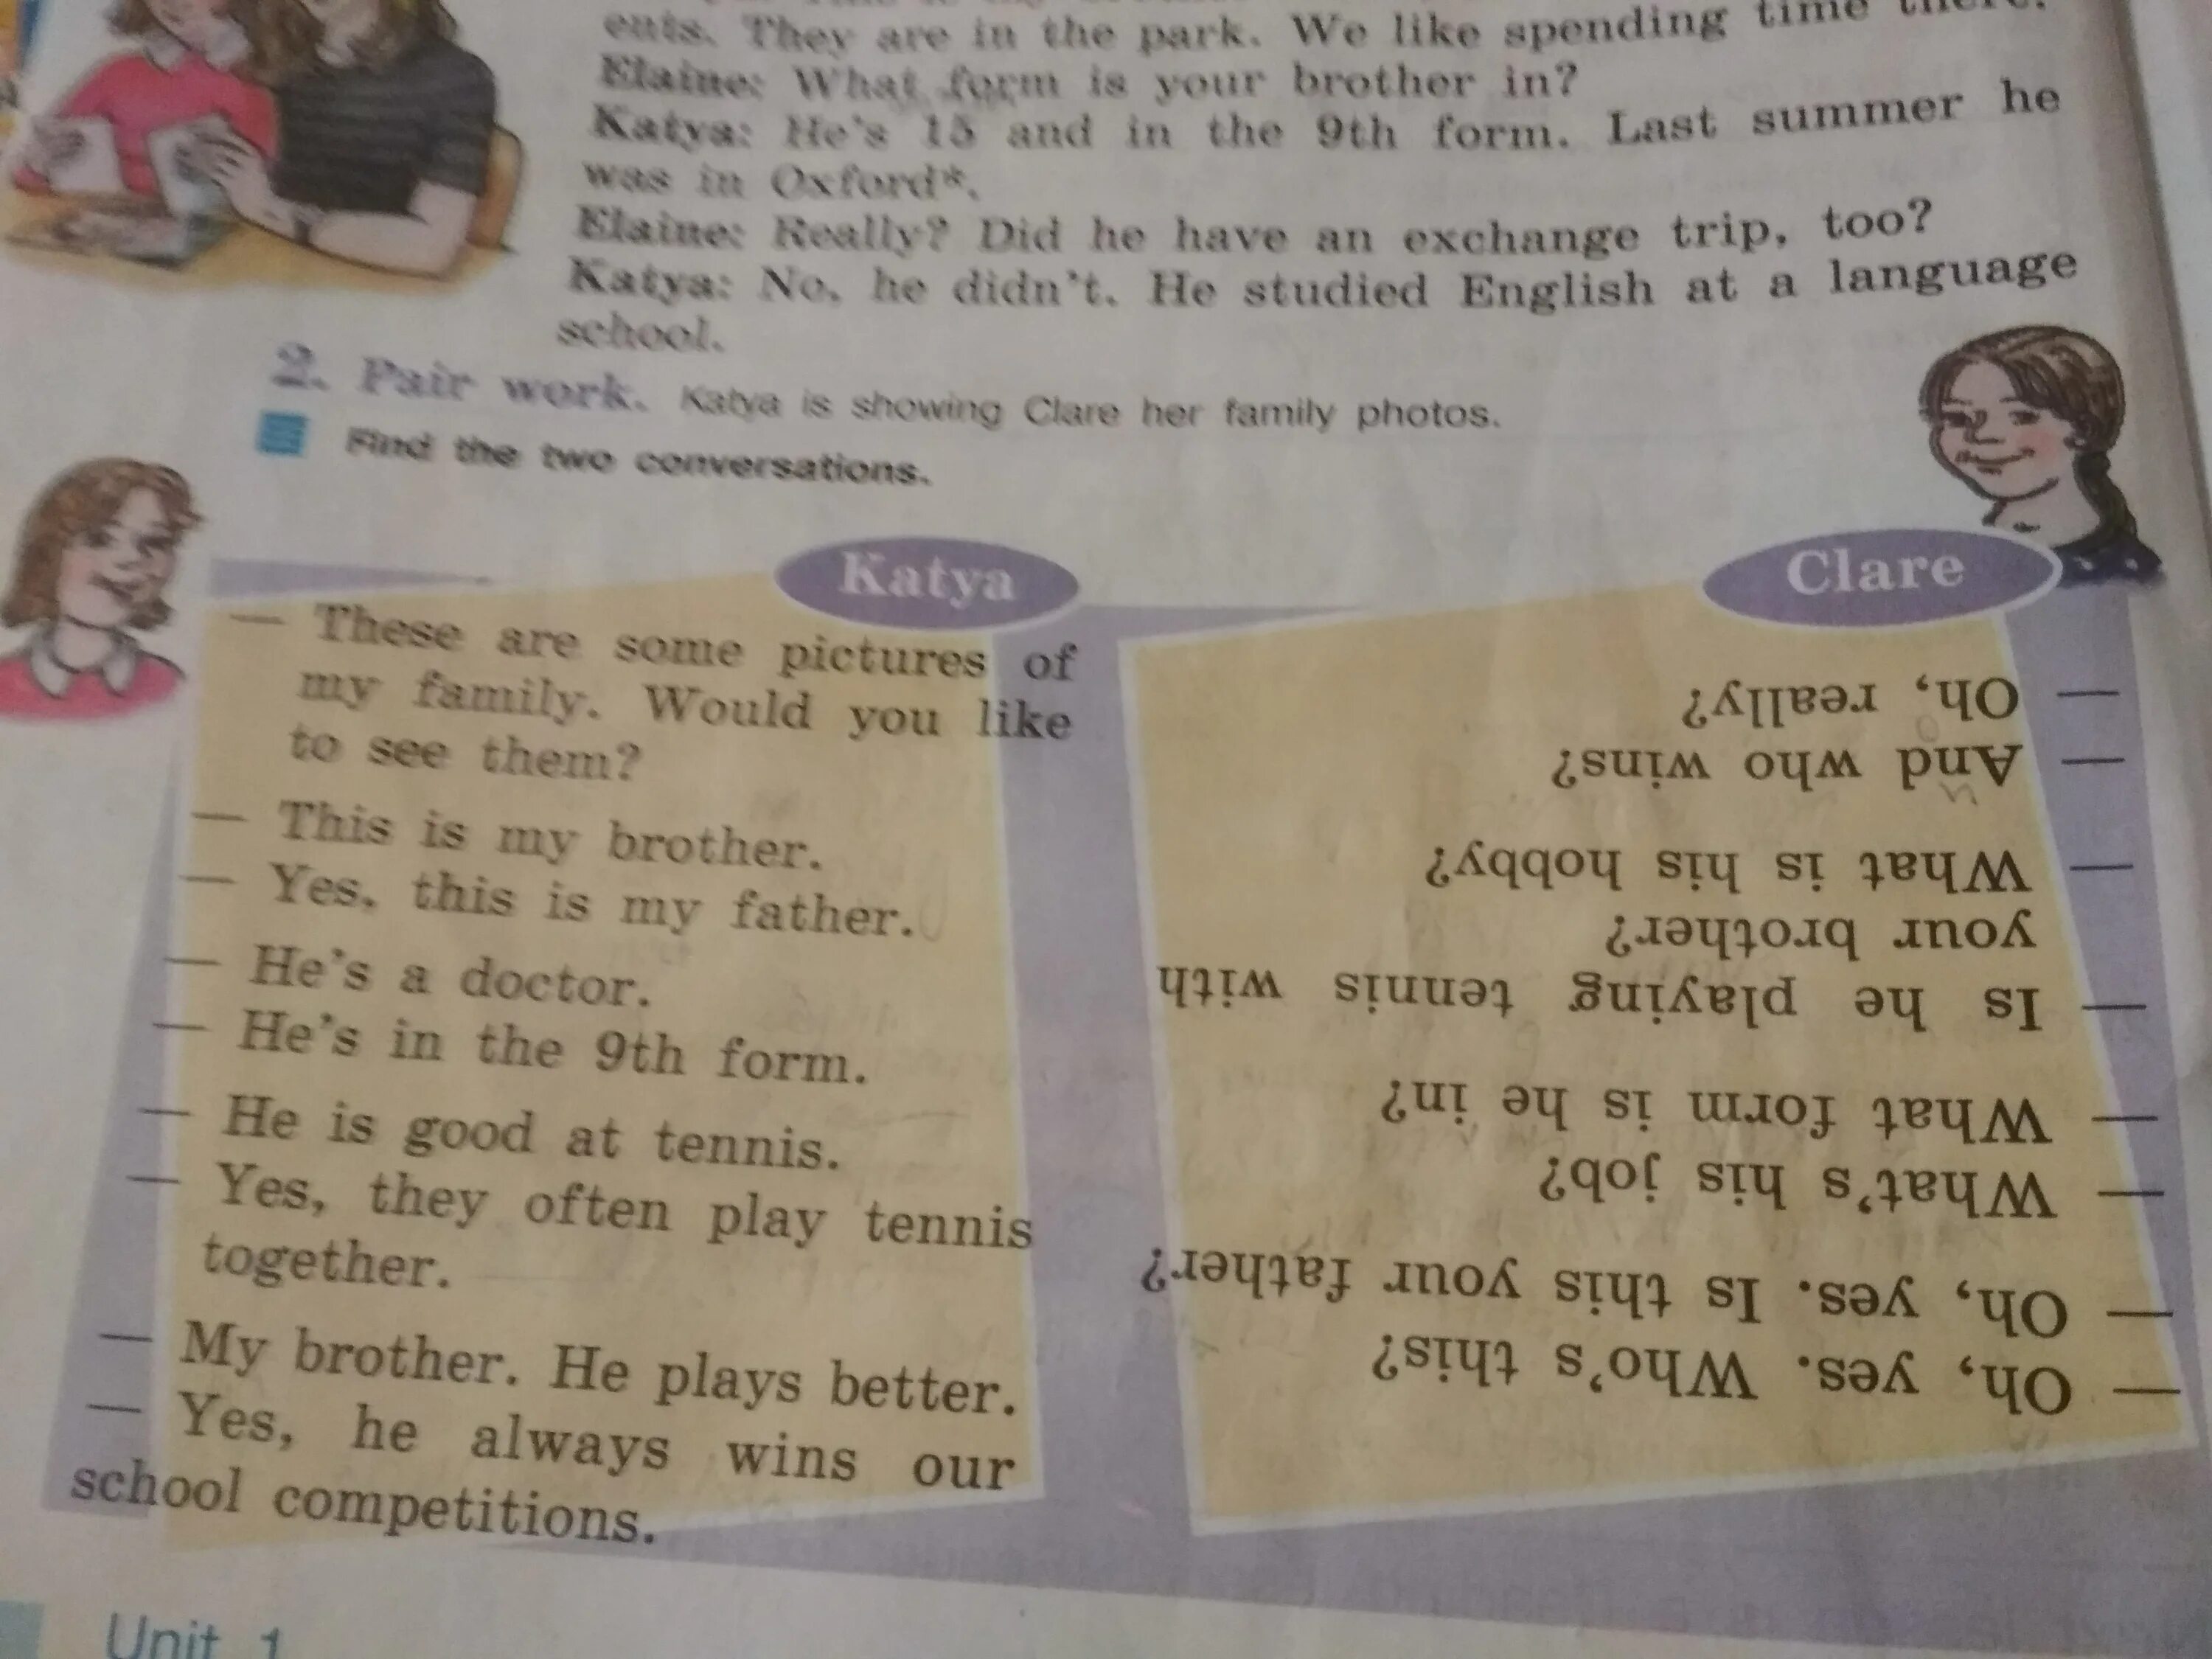 ents. They are in the park. We like spending time there.
Elaine: What form is your brother in?
Katya: He's 15 and in the 9th form. Last summer he
was in Oxford*.
Elaine: Really? Did he have an exchange trip, too?
Katya: No, he didn't. He studied English at a language
school.
2. Pair work. Katya is showing Clare her family photos.
Find the two conversations.
Katya
— These are some pictures of
my family. Would you like
to see them?
— This is my brother.
— Yes, this is my father.
— He's a doctor.
— He's in the 9th form.
— He is good at tennis.
— Yes, they often play tennis
together.
— My brother. He plays better.
— Yes, he always wins our
school competitions.
Clare
— Oh, yes. Who's this?
— Oh, yes. Is this your father?
— What's his job?
— What form is he in?
— Is he playing tennis with
your brother?
— What is his hobby?
— And who wins?
— Oh, really?
Unit 1